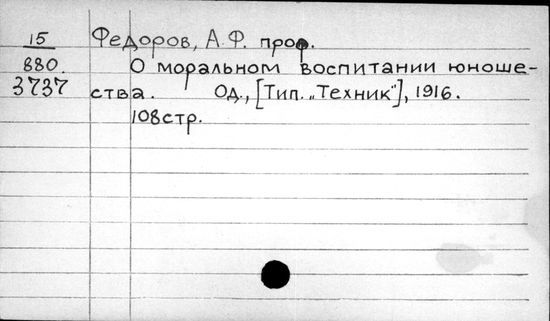 15 Федоров, А.Ф. проф.
880. О моральном воспитании юноше-
3737 ства. Од., [Тип. „Техник"], 1916.
108стр.